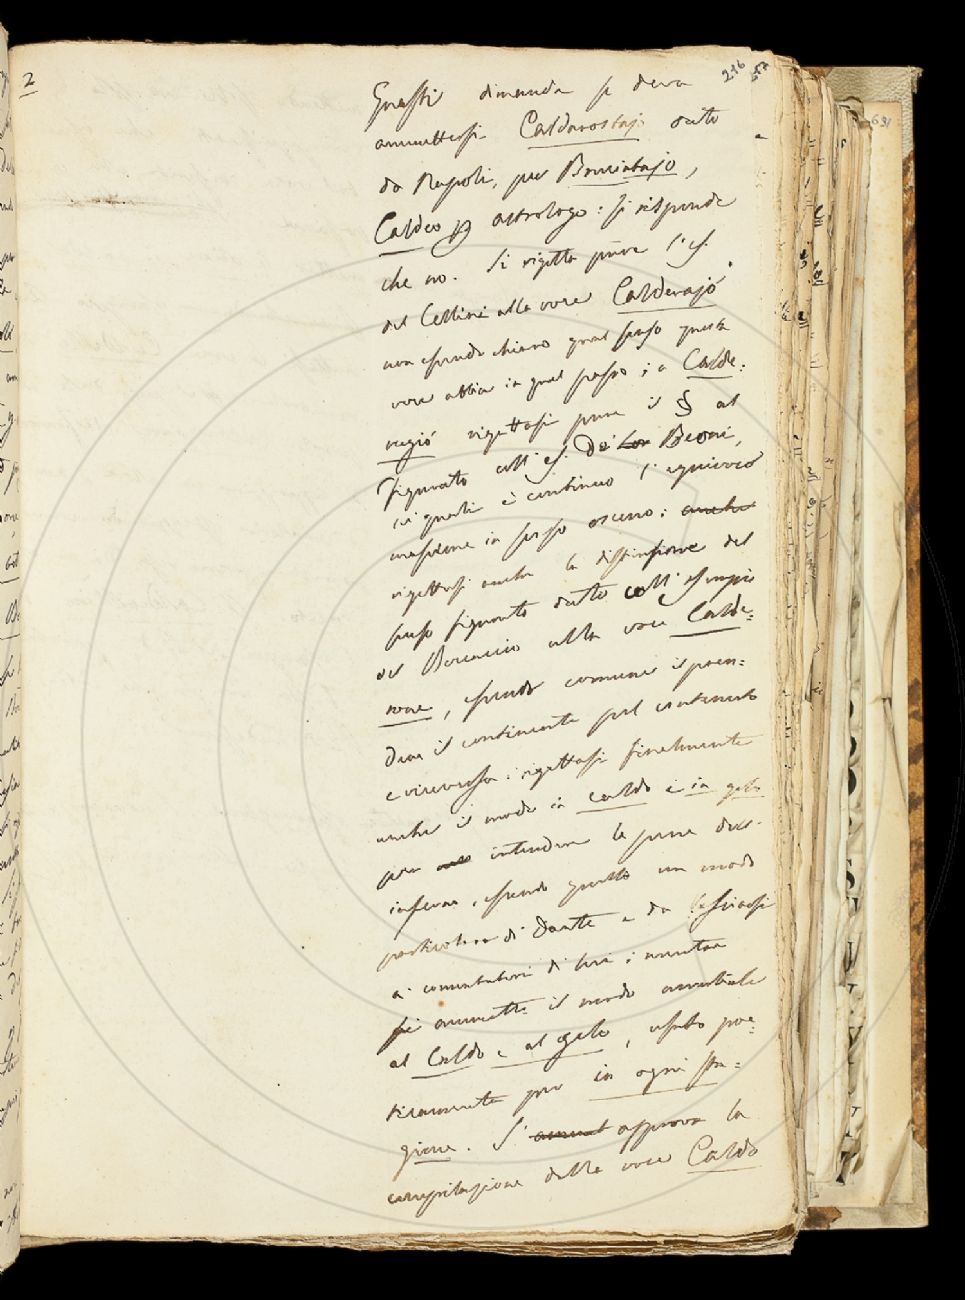 2
216
Grassi dimanda se deva
ammettersi Caldarostajo
da Napoli, per Bruciatajo,
Caldeo p astrologo: si risponde
che no. Si rigetta pure l'es.
del Cellini alla voce Calderajo
non essendo chiaro qual senso questa
voce abbia in quel passo; a Calde=
rugió rigettasi pure il § al
figurato coll'es. de' Beoni,
in quanti è continuo l'equivoco
in senso osceno:
rigettasi anche la distinzione del
senso figurato dato coll'esempio
del Boccaccio alla voce Calde=
rone, essendo comune il pren=
dere il continente pel contenuto
e viceversa: rigettasi finalmente
anche il modo in caldo e in gelo
per intendere le pene dell'
inferno, essendo quello un modo
particolare di Dante e da lasciarsi
a' comentatori di lui; invece
si ammette il modo avverbiale
al Caldo e al gelo, usato poe=
ticamente per in ogni sta=
gione. S' approva la
compilazione della voce Caldo